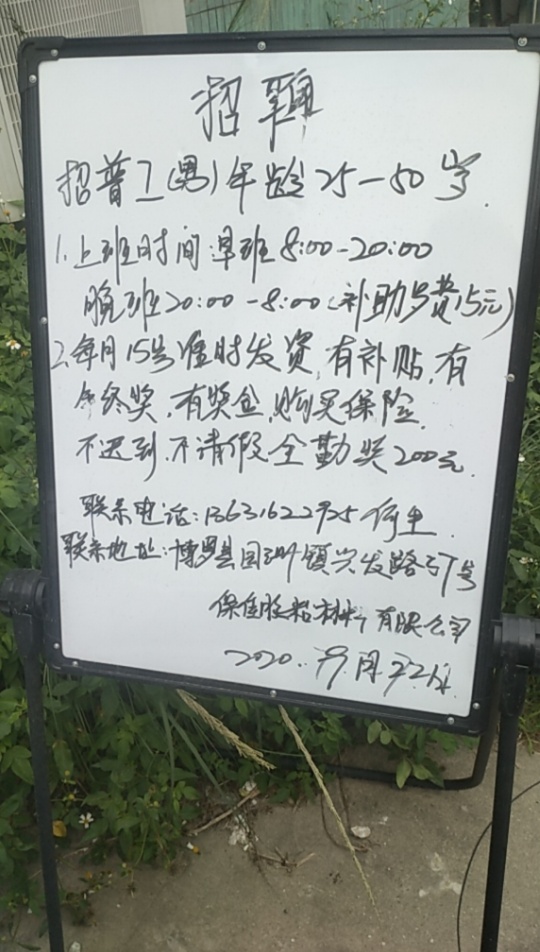 招聘
招普工(男)年龄25-50岁.
1.上班时间:早班8:00-20:00
晚班20:00-8:00(补助歺费15元)
2.每月15号准时发资,有补贴,有
年终奖,有奖金,购买保险.
不迟到.不请假全勤奖200元.
联系电话:13631622925何生.
联系地址:博罗县园洲镇兴发路57号
保佳胶粘材料有限公司
2020.